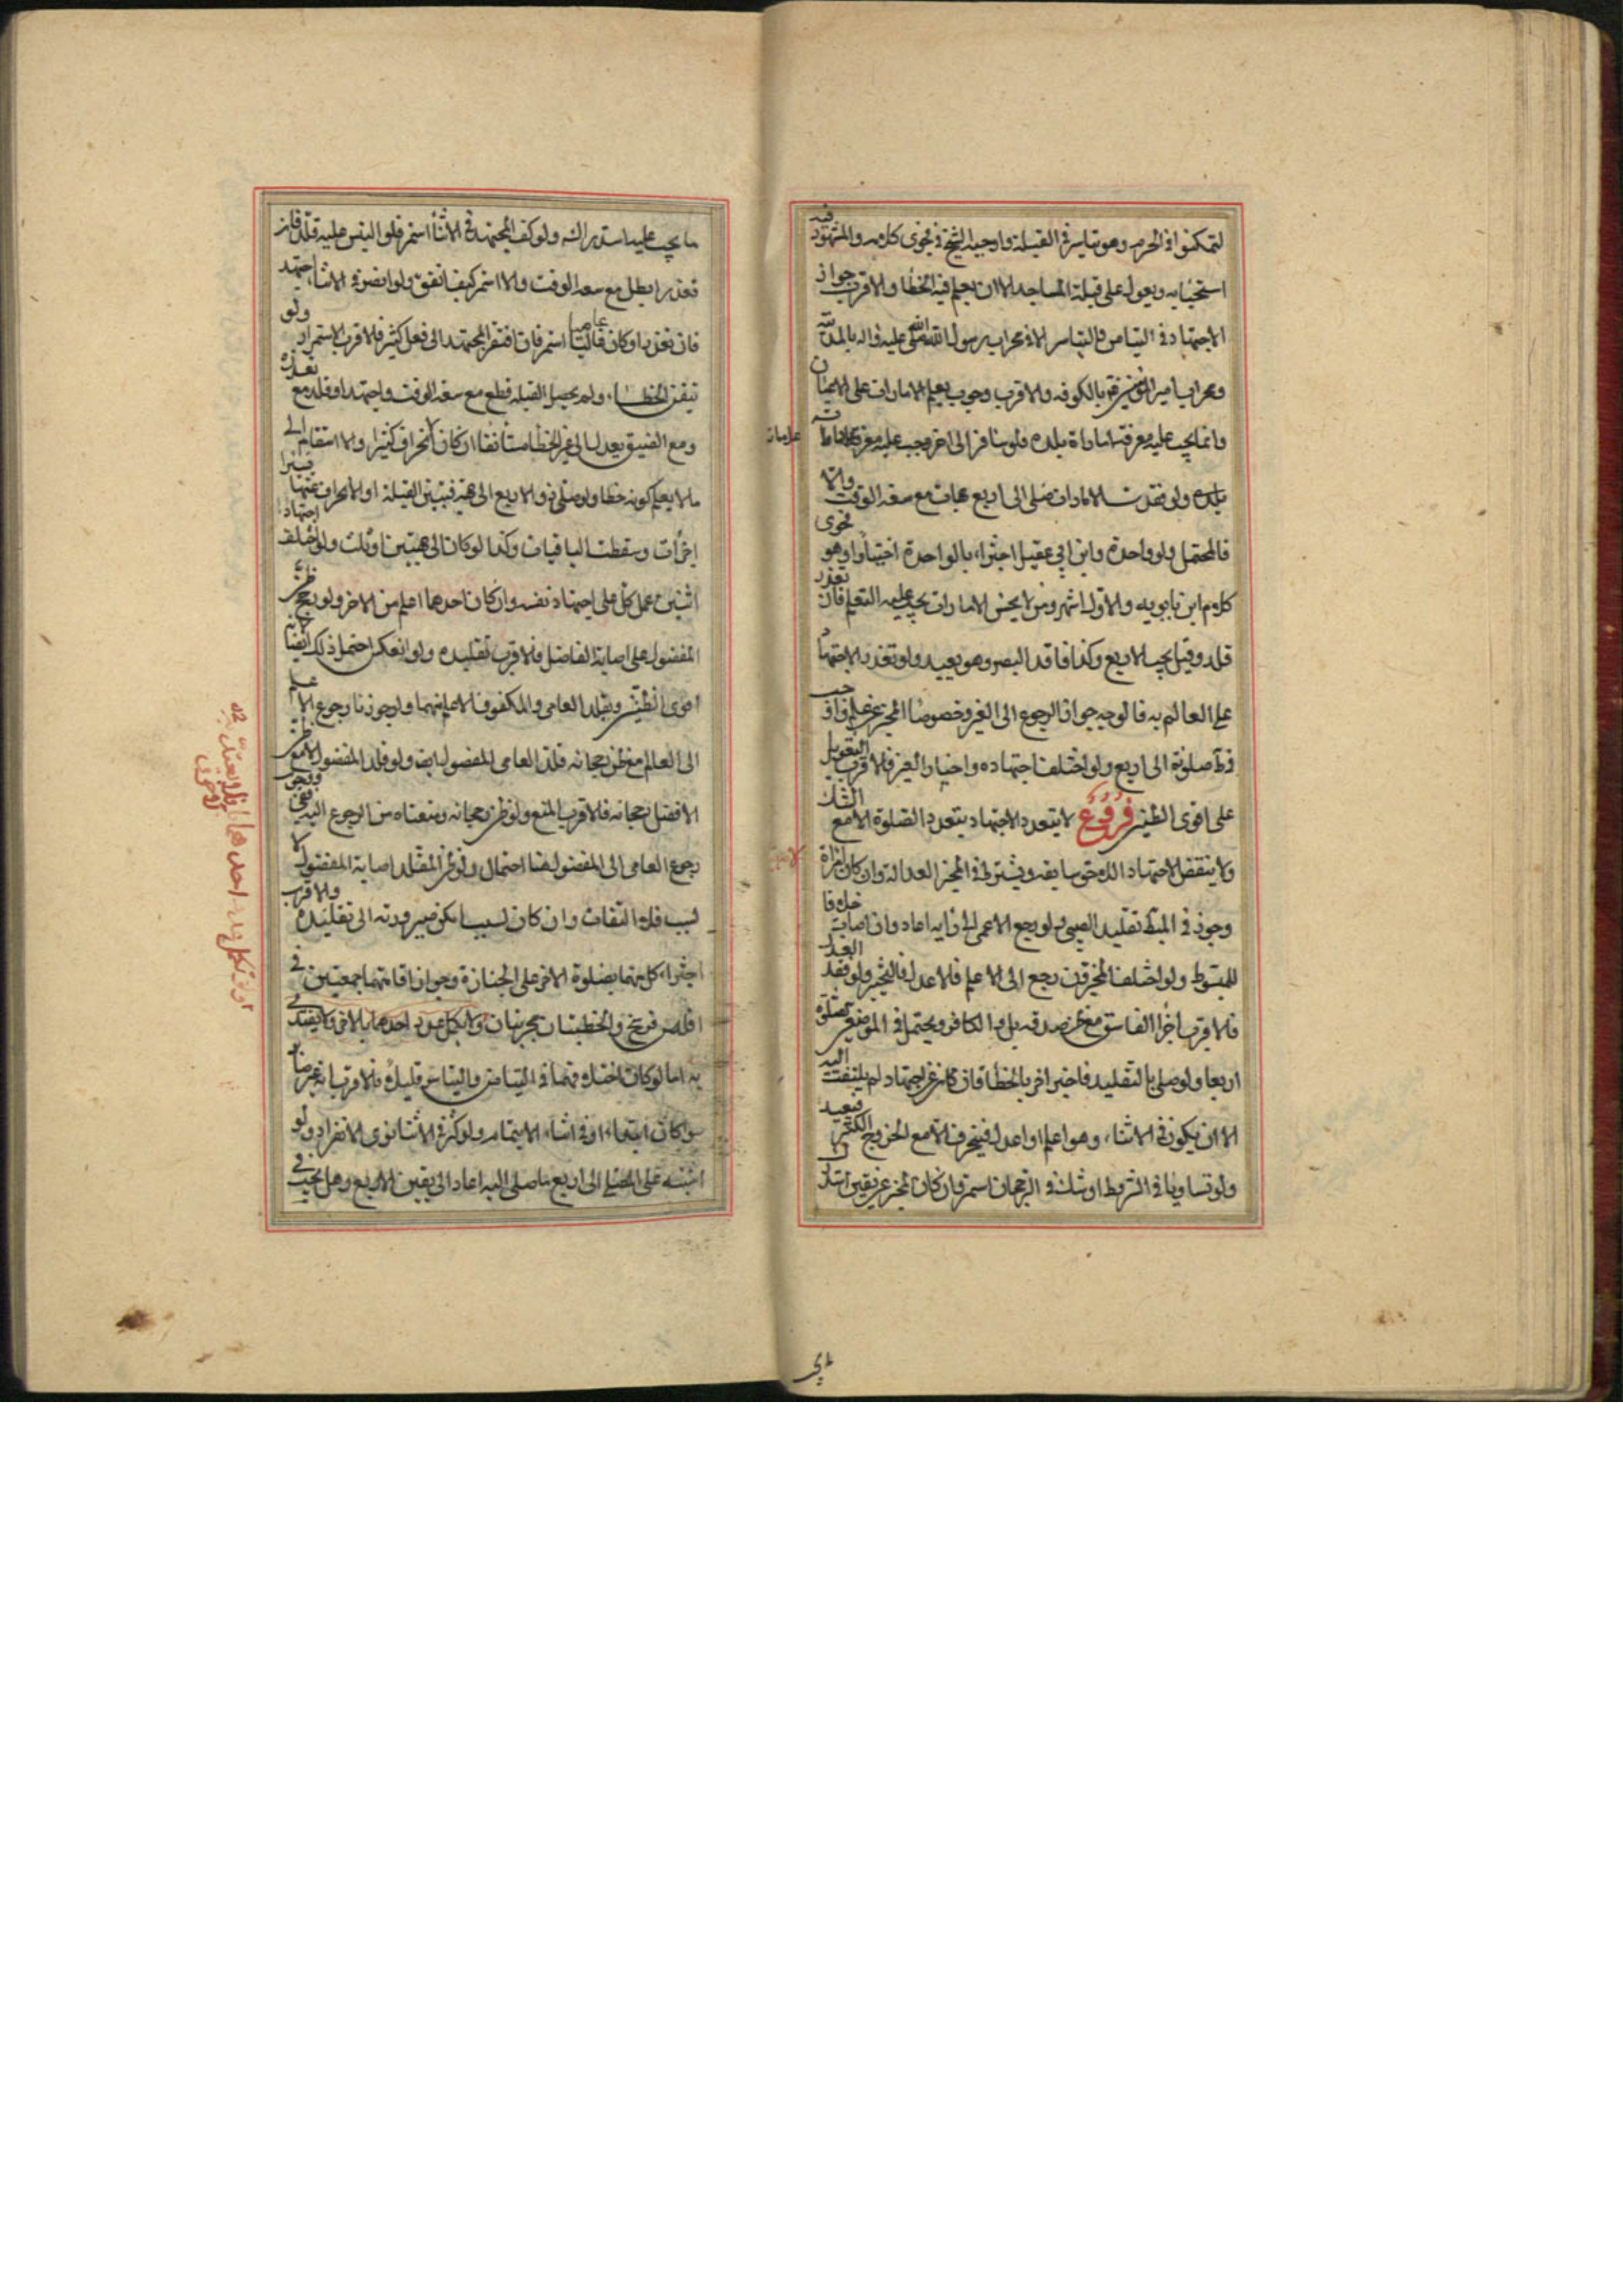 ليتمكنوا في الحرم وهو تياسر في القبلة واوجبه الشيخ في فحوى كلامه والمشهور فيه
استحبابه ويعول على قبلة المساجد الا ان يعلم فيه الخطا والاقرب جواز
الاجتهاد في التيامن والتياسر الا في محراب رسول الله صلى الله عليه واله بالمدينة
ومحراب امير المؤمنين بالكوفه والاقرب وجوب تعلم الامارات على الاعيان
وانما يجب عليه معرفة امارة بلده فلو سافر الى اخر وجب عليه معرفة
علامات
بلده ولو فقدت الامارات صلى الى اربع جهات مع سعة الوقت والا
فالمحتمل ولو واحدة وابن ابي عقيل اجتزاء بالواحدة اختيارا وهو فحوى
كلام ابن بابويه والاول اشهر ومن لا يحسن الامارات يجب عليه التعلم فان تعذر
قلد وقيل يجب الاربع وكذا فاقد البصر وهو بعيد ولو تعذر الاجتهاد
على العالم به فالوجه جواز الرجوع الى الغير خصوصا المخبر عن علم واوجب
في ط صلوته الى اربع ولو اختلف اجتهاده واخبار الغير فالاقرب التعويل
على اقوى الظنين فروع لا يتعدد الاجتهاد بتعدد الصلوة الا مع الشك
ولا ينقض الاجتهاد اللاحق سابقه ويشترط في المخبر العدالة وان كان امراة
وجوز في المبسوط تقليد الصبي ولو رجع الاعمى الى رايه اعاد وان اصاب خلافا
للمبسوط ولو اختلف المخبرون رجع الى الاعلم فالاعدل فالتخيير ولو فقد العدل
فالاقرب اجزاء الفاسق مع ظن صدقه بل والكافر ويحتمل في الموضعين صلوته
اربعا ولو صلى بالتقليد فاخبر اخر بالخطا فان كان عن اجتهاد لم يلتفت اليه
الا ان يكون في الاثناء وهو اعلم او اعدل فينحرف الا مع الخروج الكثير فيعيد
ولو تساويا في الشروط او شك في الرجحان استمر وان كان المخبر عن يقين استدار
ما يجب عليه استدبر السنه ولو كف المجتهد في الاثناء استمر فلو التبس عليه قلد فان
تعذر ابطل مع سعه الوقت والا استمر كيف اتفق ولو ابصر في الاثناء اجتهد
فان تعذر او كان عاميا استمر فان افتقر المجتهد الى فعل كثير فالاقرب الاستمرار ولو
تيقن الخطاء ولم يحصل القبله قطع مع سعة الوقت واجتهد او قلد مع تعذره
ومع الضيق يعدل الى غير الخطا مستانفا ان كان الانحراف كثيرا والا استقام الى
ما لا يعلم كونه خطا ولو صلى في الاربع الى جهة فتبين القبلة او الانحراف عنها يسيرا
اجزأت وسقطت الباقيات وكذا لو كان الى جهتين او ثلث ولو اختلف اجتهاد
اثنين عمل كل على اجتهاد نفسه وان كان احدهما اعلم من الاخر ولو رجح ظن
المفضول على اصابة الفاضل فالاقرب تقليده ولو انعكس احتمل ذلك ايضا لانه
اقوى الظنين ويقلد العامي والمكفوف الاعلم منهما ولو جوزنا رجوع الاعلم
الى العالم مع ظن رجحانه قلد العامي المفضول ايض ولو قلد المفضول لا مع ظن
الافضل رجحانه فالاقرب المنع ولو ظن رجحانه ومنعناه من الرجوع اليه ففي
رجوع العامي الى المفضول هنا احتمال ولو ظن المقلد اصابة المفضول لا
لسبب فلا التفات وان كان لسبب امكن صيرورته الى تقليده والاقرب
اجتزاء كل منهما بصلوة الاخر على الجنازة وجواز اقامتهما جمعتين في
اقل من فرسخ والخطبتان تجزيان
به اما لو كان اختلافهما في التيامن والتياسر قليلا فالاقرب انه غير ضار
سواء كان ابتداء او في اثناء الايتمام ولو كثر في الاثناء نوى الانفراد ولو
اشتبه على المصلي الى اربع ما صلى اليه اعاد الى يقين الاربع وهل يجب في